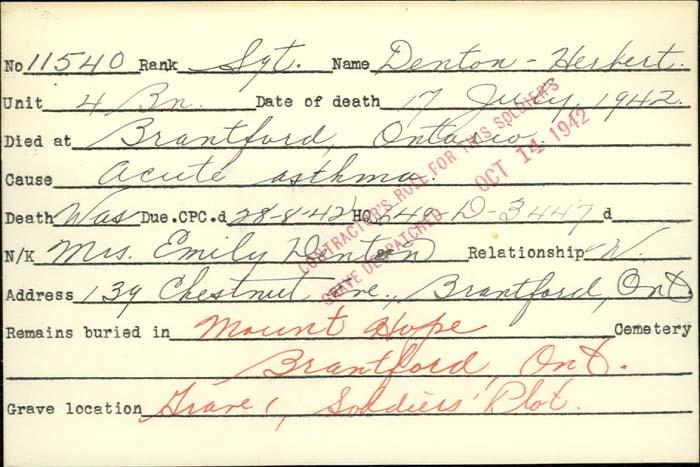 No 11540 Rank Sgt. Name Denton - Herbert.
Unit 4 Bn. Date of death 17 July 1942.
Died at Brantford, Ontario
Cause acute asthma.
Death Was Due.CPC.d 28-8-42 HQ 649-D-3447 d
N/K Mrs. Emily Denton Relationship W.
Address 139 Chestnut Ave., Brantford, Ont.
Remains buried in Mount Hope Cemetery
Brantford, Ont.
Grave location Grave 1, Soldiers' Plot.
CONTRACTOR'S ROLE FOR THIS SOLDIER'S
GRAVE DESPATCHED OCT 14 1942